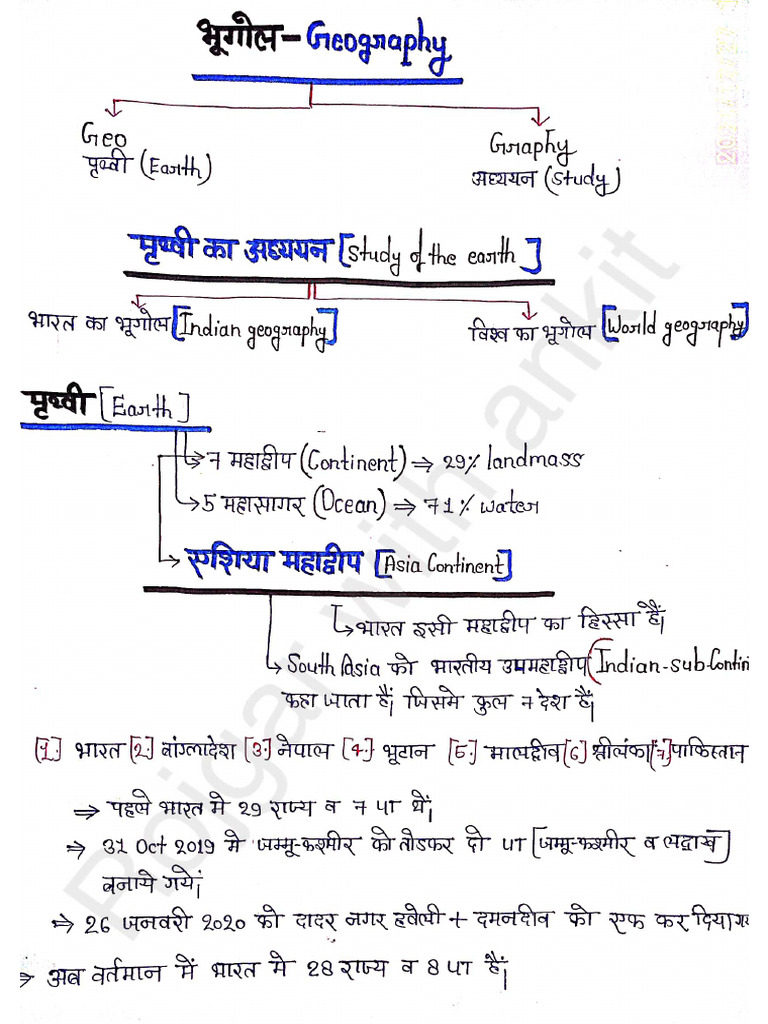 भूगोल - Geography
Geo Graphy
पृथ्वी (Earth) अध्ययन (Study)
पृथ्वी का अध्ययन [Study of the earth]
भारत का भूगोल [Indian geography] विश्व का भूगोल [World geography]
पृथ्वी [Earth]
→ 7 महाद्वीप (Continent) ⇒ 29% landmass
→ 5 महासागर (Ocean) ⇒ 71% water
→ एशिया महाद्वीप [Asia Continent]
→ भारत इसी महाद्वीप का हिस्सा है।
→ South Asia को भारतीय उपमहाद्वीप (Indian-sub-Contin
कहा जाता है। जिसमे कुल 7 देश हैं।
[1.] भारत [2.] बांग्लादेश [3.] नेपाल [4.] भूटान [5.] मालदीव [6] श्रीलंका [7.] पाकिस्तान
⇒ पहले भारत मे 29 राज्य व 7 UT थें।
⇒ 31 Oct 2019 मे जम्मू-कश्मीर को तोडकर दो UT [जम्मू-कश्मीर व लद्दाख]
बनाये गये।
⇒ 26 जनवरी 2020 को दादर नगर हवेली + दमनदीव को एक कर दिया गय
⇒ अब वर्तमान में भारत मे 28 राज्य व 8 UT हैं।
Rojgar with ankit